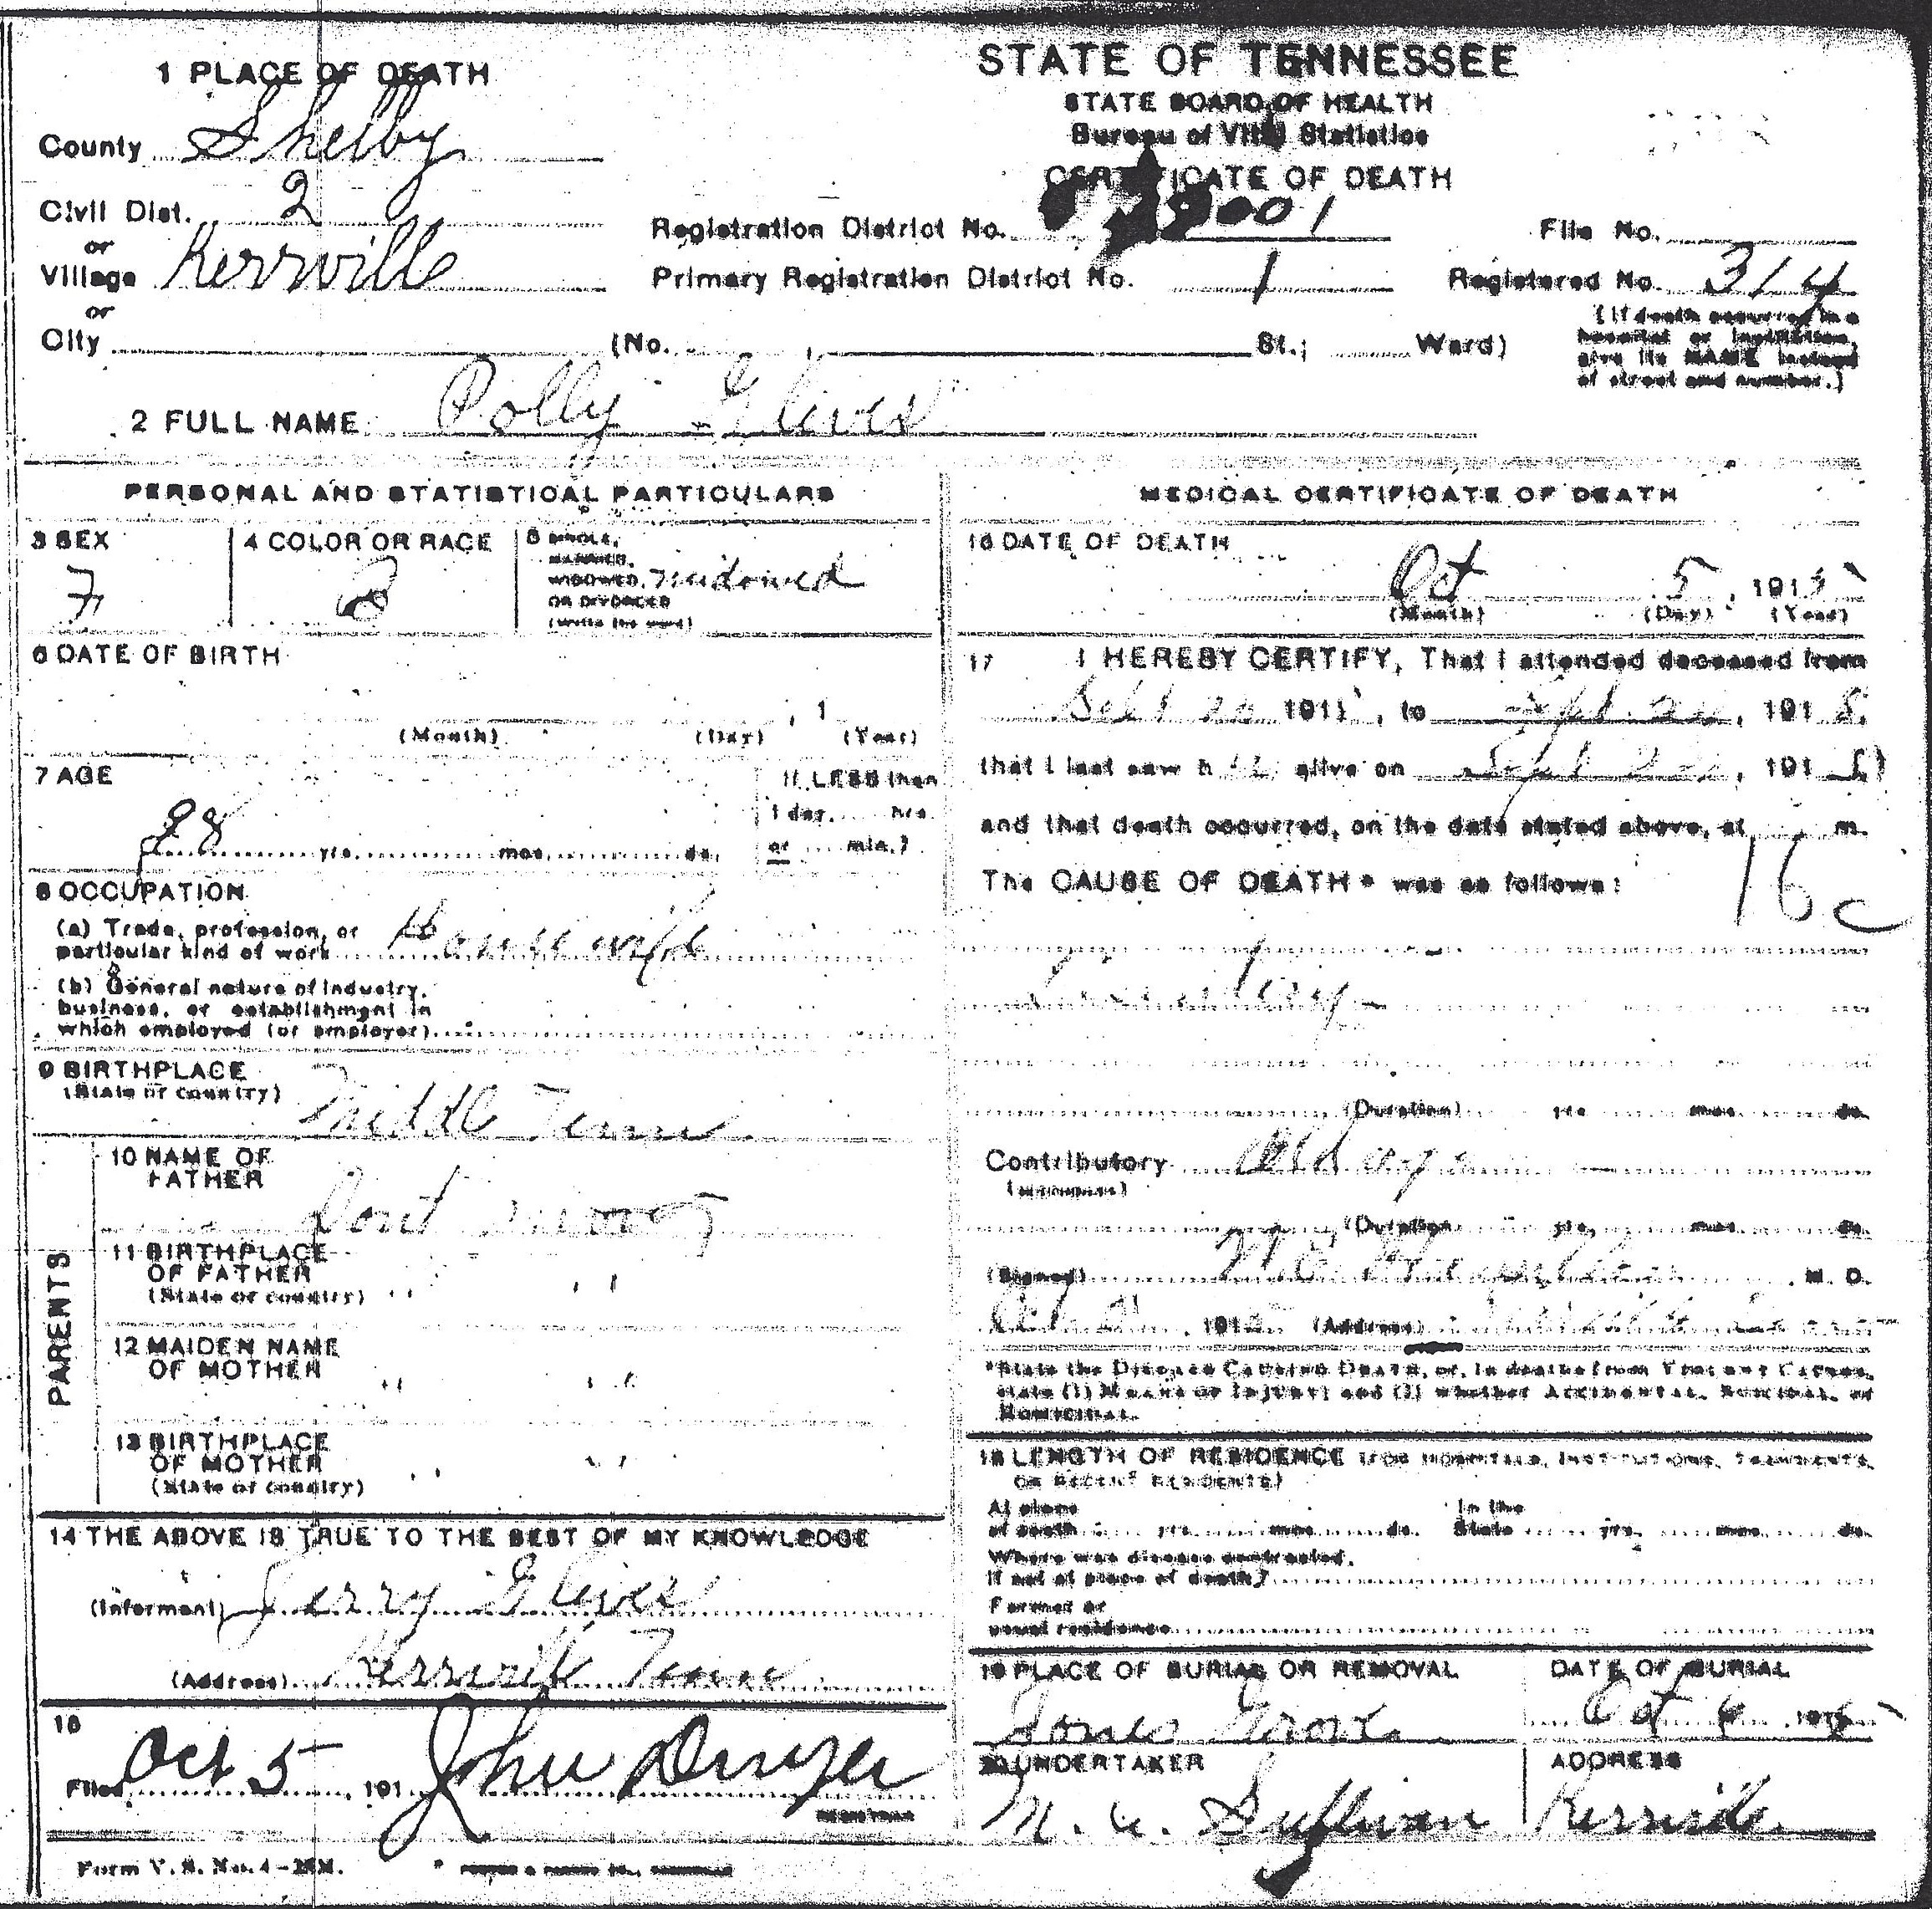 STATE OF TENNESSEE
STATE BOARD OF HEALTH
Bureau of Vital Statistics
CERTIFICATE OF DEATH
1 PLACE OF DEATH
County Shelby
Civil Dist. 2
or
Village Kerrville
or
City (No. St.; Ward)
Registration District No. 9001
File No.
Primary Registration District No. 1
Registered No. 314
(If death occurred in a
hospital or institution,
give its NAME instead
of street and number.)
2 FULL NAME Polly Glives
PERSONAL AND STATISTICAL PARTICULARS
3 SEX
F
4 COLOR OR RACE
5 SINGLE,
MARRIED,
WIDOWED, widowed
OR DIVORCED
(Write the word)
6 DATE OF BIRTH
, 1
(Month) (Day) (Year)
7 AGE
If LESS than
1 day, hrs.
98 yrs. mos. ds. or min.?
8 OCCUPATION
(a) Trade, profession, or
particular kind of work Housewife
(b) General nature of industry,
business, or establishment in
which employed (or employer)
9 BIRTHPLACE
(State or country) Middle Tenn
PARENTS
10 NAME OF
FATHER Dont
11 BIRTHPLACE
OF FATHER
(State or country) " "
12 MAIDEN NAME
OF MOTHER " "
13 BIRTHPLACE
OF MOTHER
(State or country) " "
14 THE ABOVE IS TRUE TO THE BEST OF MY KNOWLEDGE
(Informant) Jerry Glives
(Address) Kerrville Tenn
15
Filed Oct 5, 191 John
REGISTRAR
Form V. S. No. 4
MEDICAL CERTIFICATE OF DEATH
16 DATE OF DEATH
Oct 5, 1915
(Month) (Day) (Year)
17 I HEREBY CERTIFY, That I attended deceased from
Sept 191, to Sept 191
that I last saw h alive on Sept 191
and that death occurred, on the date stated above, at m.
The CAUSE OF DEATH* was as follows:
16c
(Duration) yrs. mos. ds.
Contributory Old age
(Secondary)
(Duration) yrs. mos. ds.
(Signed) M. D.
Oct 191 (Address)
*State the Disease Causing Death, or, in deaths from Violent Causes,
state (1) Means of Injury; and (2) whether Accidental, Suicidal, or
Homicidal.
18 LENGTH OF RESIDENCE (FOR HOSPITALS, INSTITUTIONS, TRANSIENTS,
OR RECENT RESIDENTS)
At place In the
of death yrs. mos. ds. State yrs. mos. ds.
Where was disease contracted,
if not at place of death?
Former or
usual residence
19 PLACE OF BURIAL OR REMOVAL
Jones Grove
DATE OF BURIAL
Oct 6, 1915
20 UNDERTAKER
Sullivan
ADDRESS
Kerrville